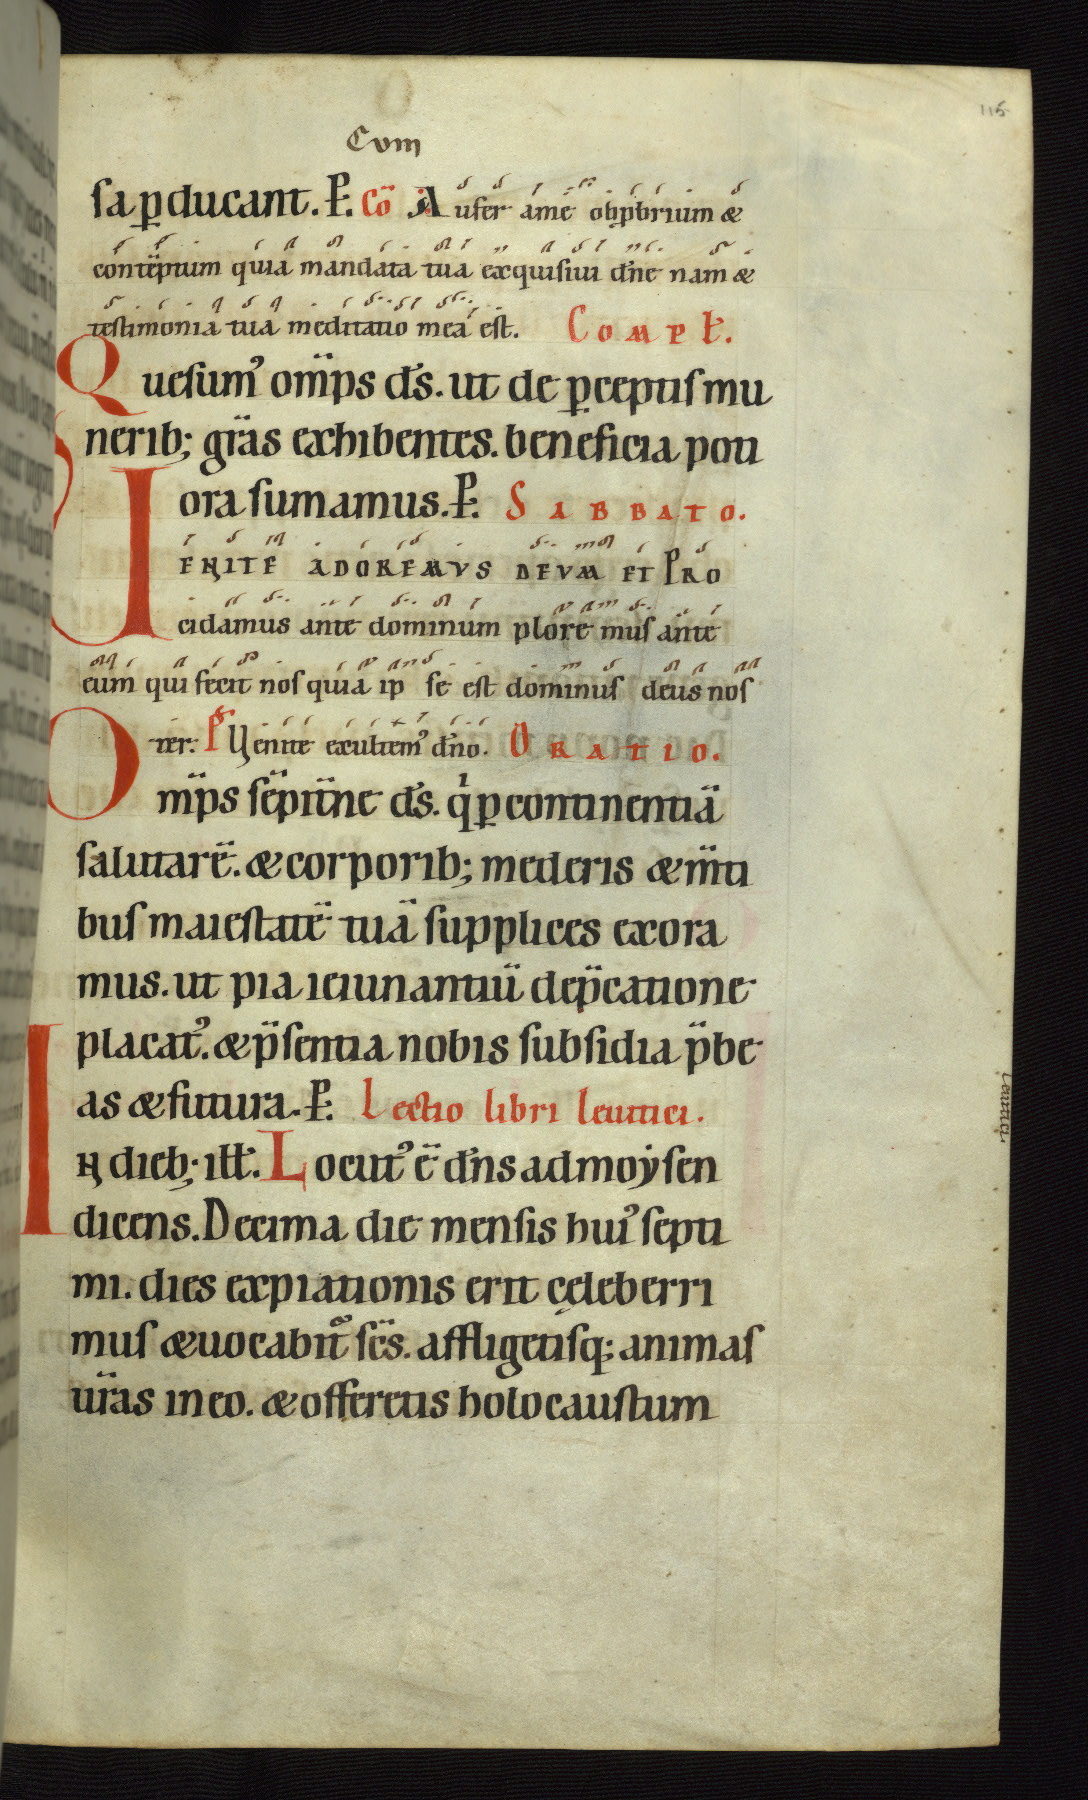 115
Cvm
sa ꝑducant. P. cō Aufer a me obprbrium &
contēptum quia mandata tua exquisiui dñe nam &
testimonia tua meditatio mea est. Compł.
Quesumꝰ omps ds. ut de ꝑceptis mu
nerib; gras exhibentes. beneficia poti
ora sumamus. P. SABBATO.
VENITE ADOREMVS DEVM ET PRO
cidamus ante dominum ploremus ante
eum qui fecit nos quia ipse est dominus deus nos
ter. P Venite exultemꝰ dño. ORATIO.
Omps sēpitne ds. qͥ ꝑ continentiā
salutarē. & corporib; mederis & mti
bus maiestatē tuā supplices exora
mus. ut pia ieiunantiū dep̄catione
placatꝰ. & p̄sentia nobis subsidia p̄be
as & futura. P. Lectio libri leuitici.
IN dieb; illł. Locutꝰ ē dñs ad moẏsen
dicens. Decima die mensis huiꝰ septi
mi. dies expiationis erit cęleberri
mus & uocabit̄ scs. affligetisq; animas
uras in eo. & offeretis holocaustum
Leuitici.